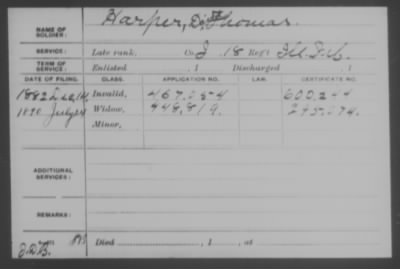 NAME OF SOLDIER: Harper, Thomas.
SERVICE: Late rank, Co. I, 18 Reg't Ill. Inf.
TERM OF SERVICE: Enlisted , 1 Discharged , 1
DATE OF FILING. CLASS. APPLICATION NO. LAW. CERTIFICATE NO.
1882 Dec, 14, Invalid, 467.054 600,244
1890 July 24 Widow, 448,819. 295,074.
Minor,
ADDITIONAL SERVICES:
REMARKS:
Died , 1 , at